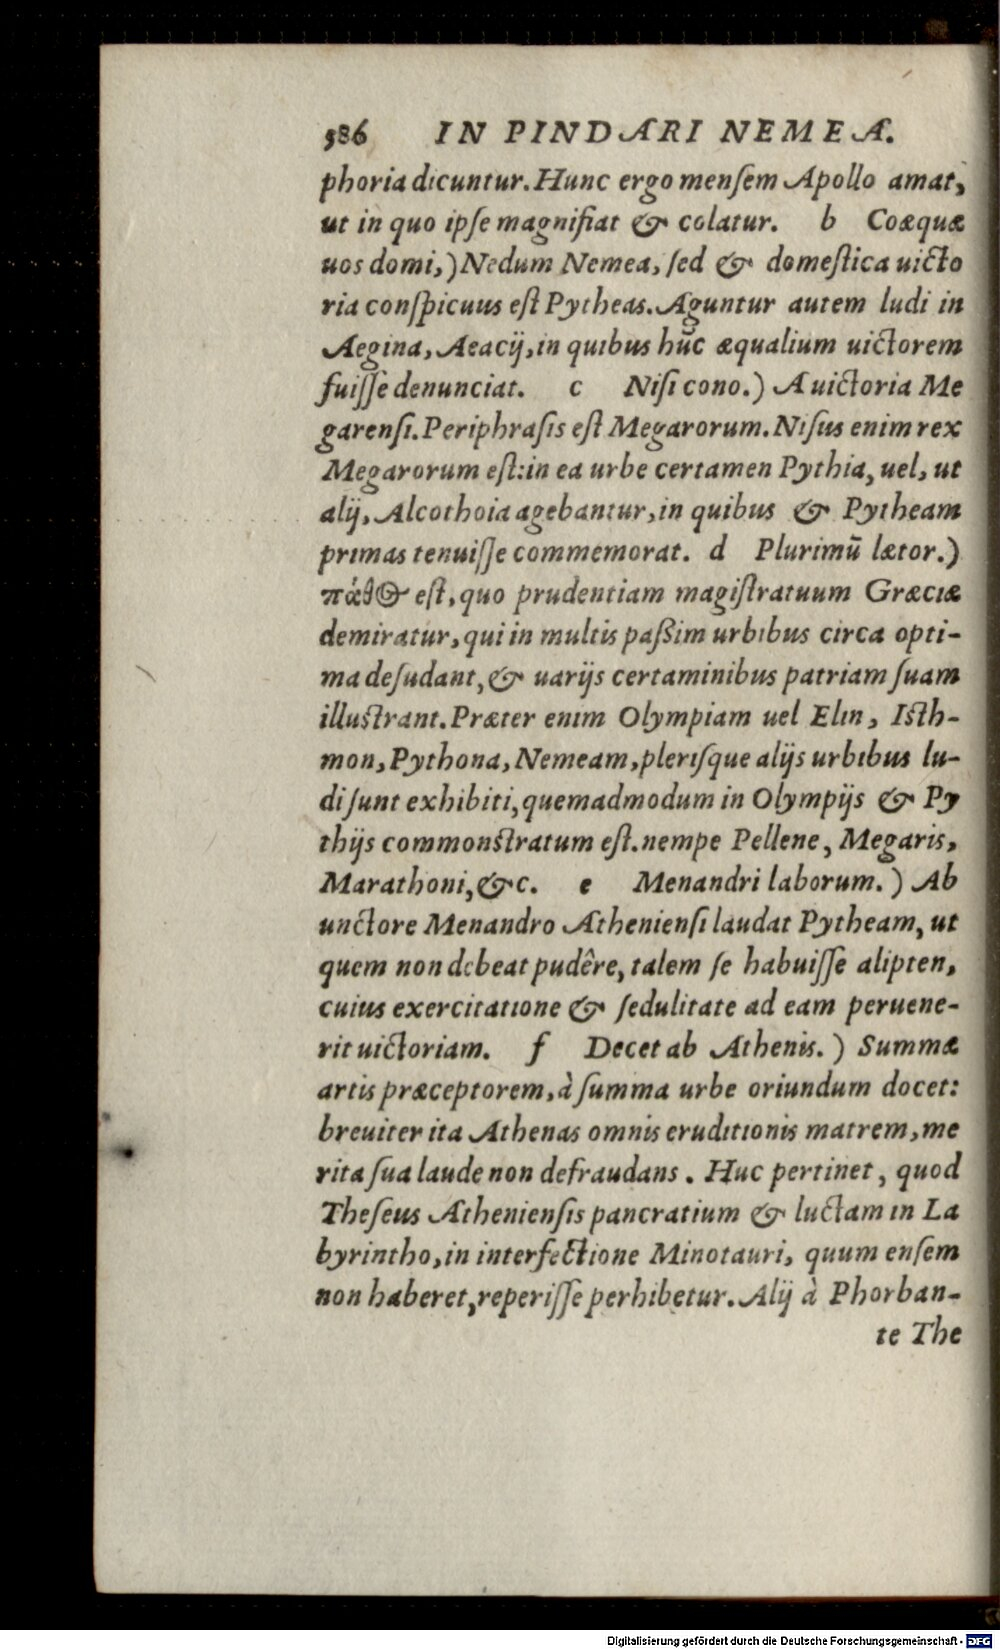 386 IN PINDARI NEMEA.
phoria dicuntur. Hunc ergo menſem Apollo amat,
ut in quo ipſe magnifiat & colatur. b Coæquæ
uos domi,) Nedum Nemea, ſed & domeſtica uicto
ria conſpicuus eſt Pytheas. Aguntur autem ludi in
Aegina, Aeacij, in quibus hūc æqualium uictorem
fuiſſe denunciat. c Niſi cono.) A uictoria Me
garenſi. Periphraſis eſt Megarorum. Niſus enim rex
Megarorum eſt: in ea urbe certamen Pythia, uel, ut
alij, Alcothoia agebantur, in quibus & Pytheam
primas tenuiſſe commemorat. d Plurimū lætor.)
πάθος eſt, quo prudentiam magiſtratuum Græciæ
demiratur, qui in multis paßim urbibus circa opti-
ma deſudant, & uarijs certaminibus patriam ſuam
illuſtrant. Præter enim Olympiam uel Elin, Iſth-
mon, Pythona, Nemeam, pleriſque alijs urbibus lu-
di ſunt exhibiti, quemadmodum in Olympijs & Py
thijs commonſtratum eſt. nempe Pellene, Megaris,
Marathoni, &c. e Menandri laborum.) Ab
unctore Menandro Athenienſi laudat Pytheam, ut
quem non debeat pudêre, talem ſe habuiſſe alipten,
cuius exercitatione & ſedulitate ad eam peruene-
rit uictoriam. f Decet ab Athenis.) Summæ
artis præceptorem, à ſumma urbe oriundum docet:
breuiter ita Athenas omnis eruditionis matrem, me
rita ſua laude non defraudans. Huc pertinet, quod
Theſeus Athenienſis pancratium & luctam in La
byrintho, in interfectione Minotauri, quum enſem
non haberet, reperiſſe perhibetur. Alij à Phorban-
te The
Digitalisierung gefördert durch die Deutsche Forschungsgemeinschaft - DFG